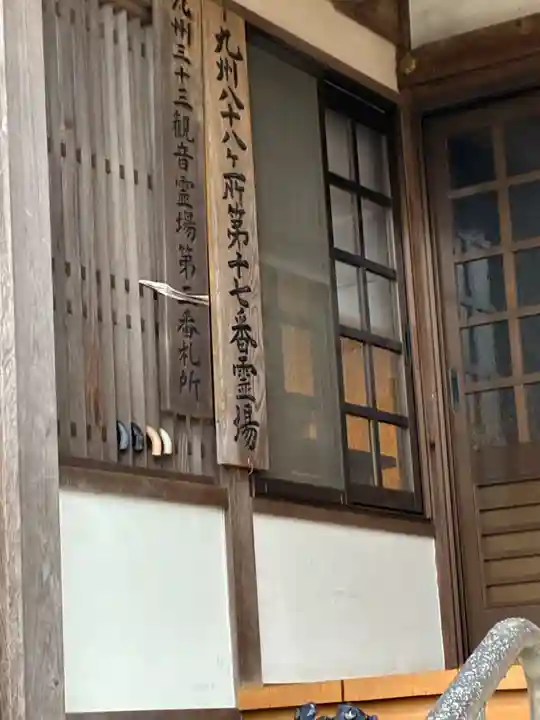 九州八十八ヶ所第十七番霊場
九州三十三観音霊場第二番札所